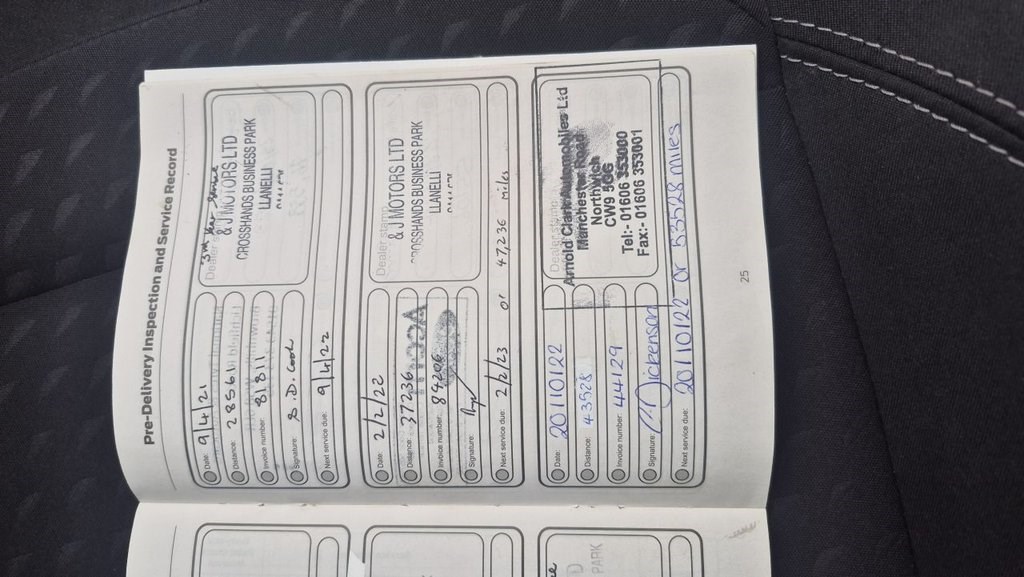 Pre-Delivery Inspection and Service Record
Date: 9/4/21
Distance: 28561
Invoice number: 81811
Signature: S.D. Cook
Next service due: 9/4/22
Dealer stamp
Service
& J MOTORS LTD
CROSSHANDS BUSINESS PARK
LLANELLI
Date: 2/2/22
Distance: 27236
Invoice number: 84206
Signature:
Next service due: 2/2/23 or 47,236 miles
Dealer stamp
& J MOTORS LTD
CROSSHANDS BUSINESS PARK
LLANELLI
Date: 20110122
Distance: 43528
Invoice number: 44129
Signature: Dickenson
Next service due: 20110122 or 53528 miles
Dealer stamp
Arnold Clark Automobiles Ltd
Manchester Road
Northwich
CW9 5GG
Tel:- 01606 353000
Fax:- 01606 353001
25
PARK